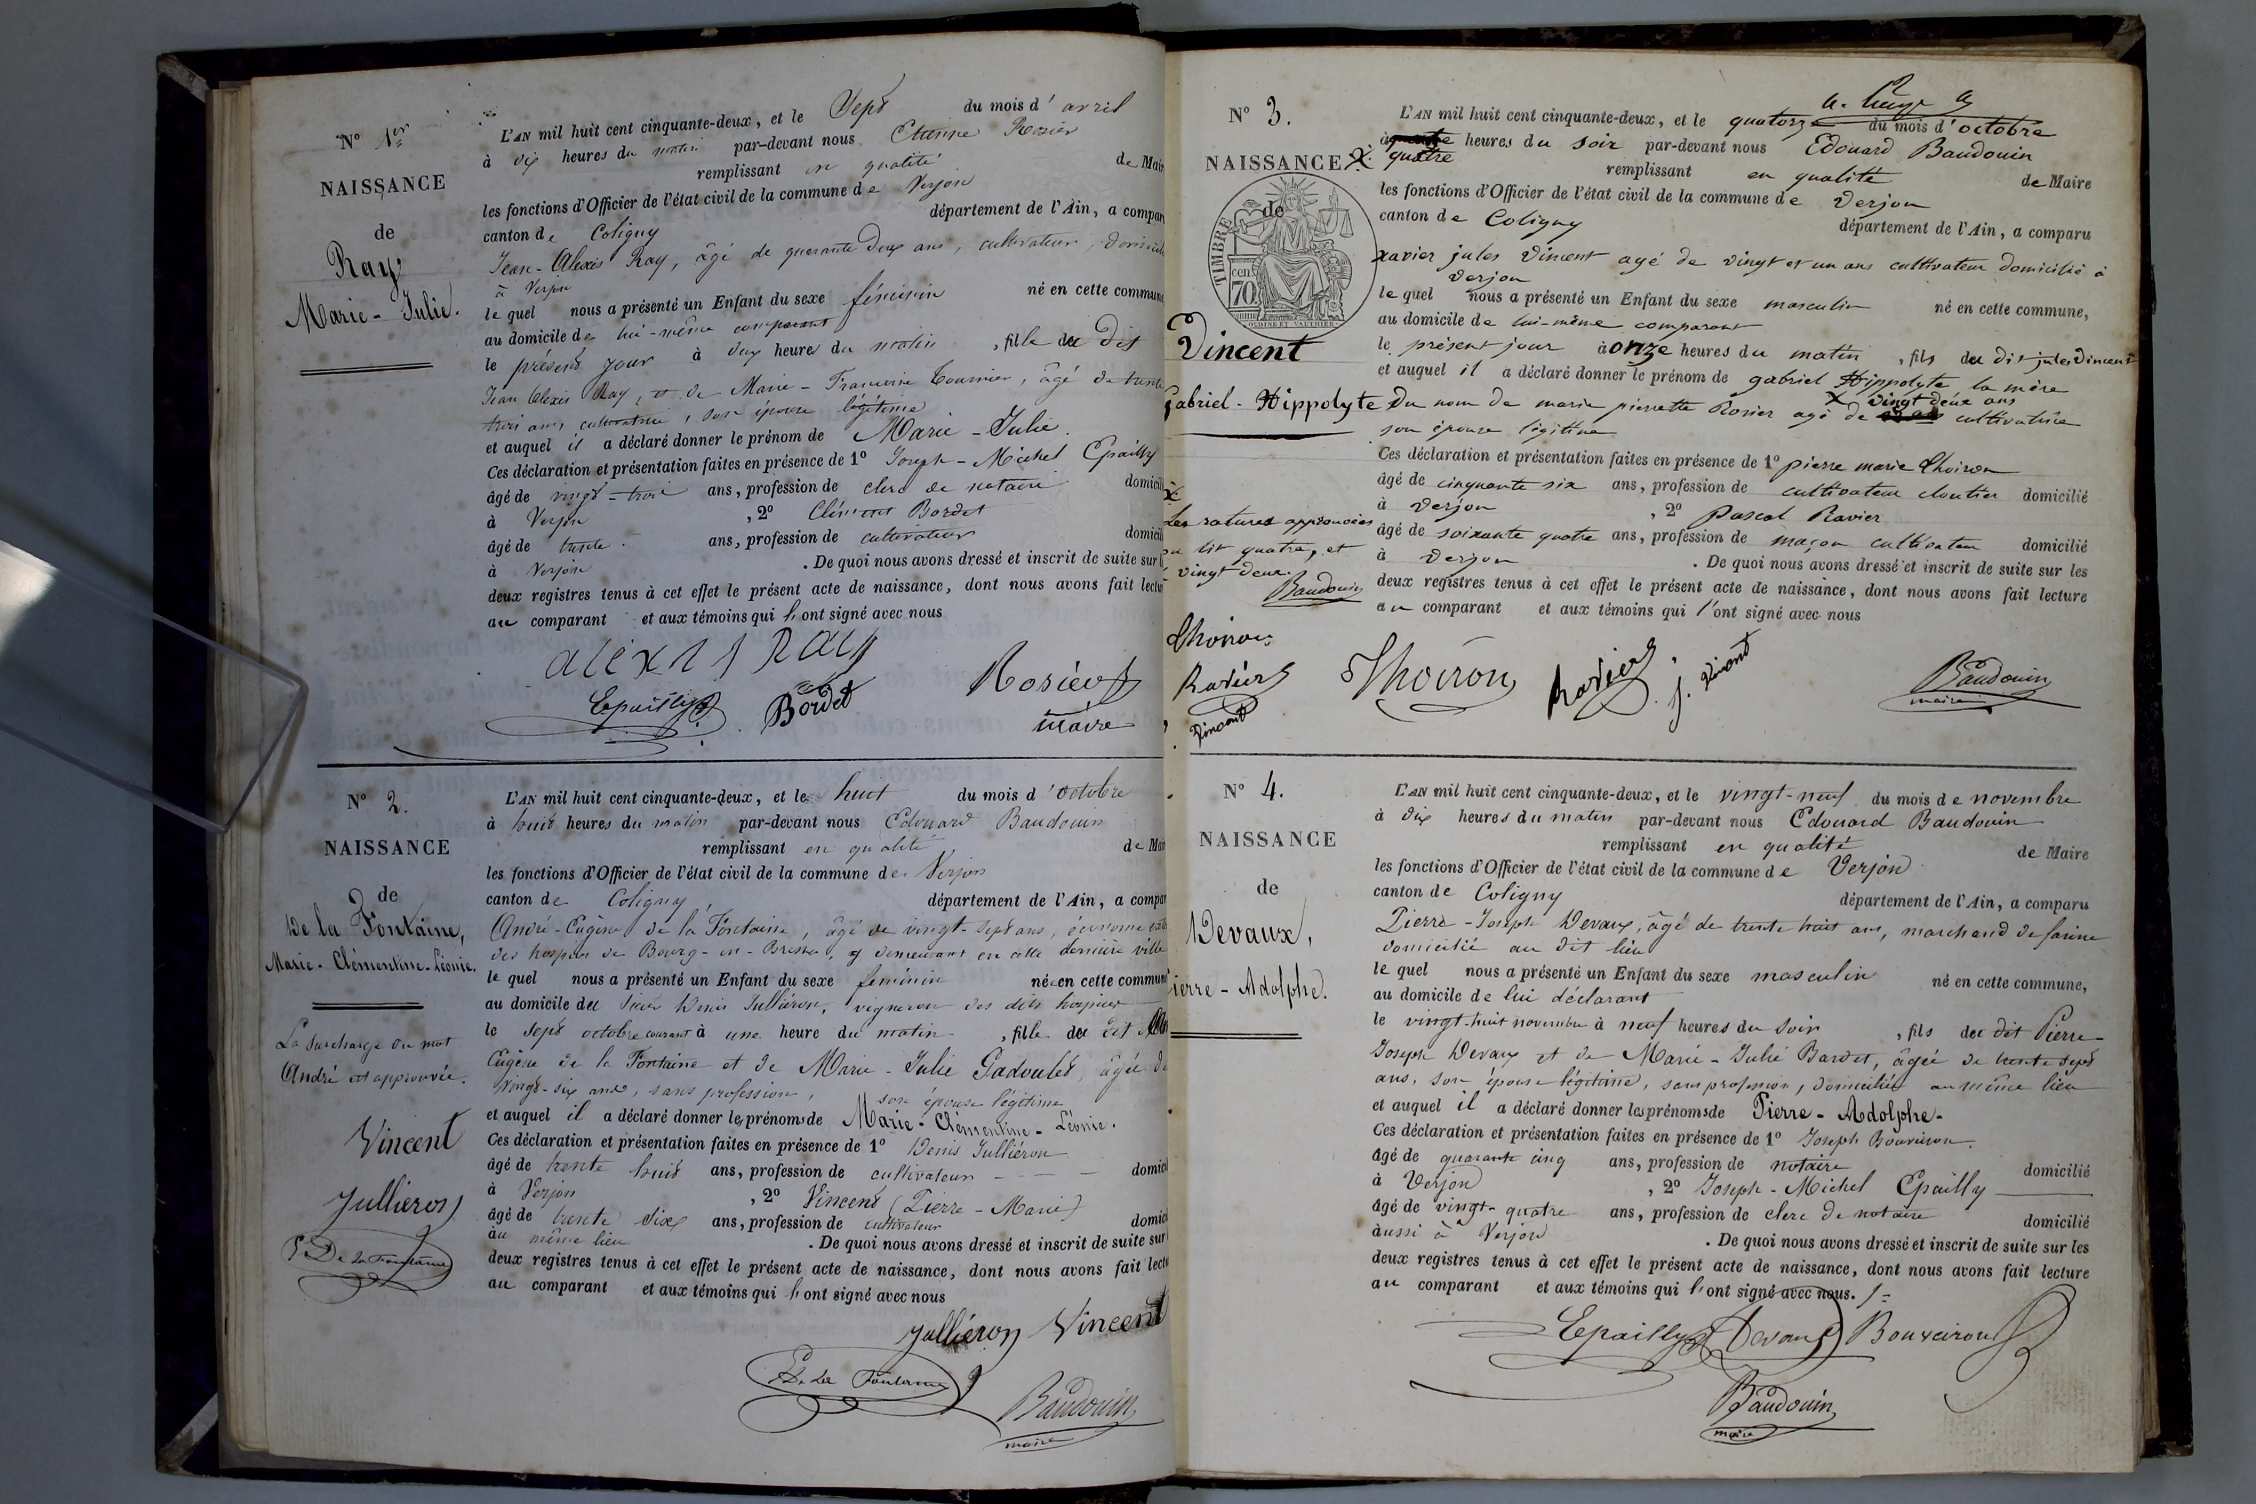 N° 1er
NAISSANCE
de
Ray
Marie - Julie.
L'AN mil huit cent cinquante-deux, et le Sept du mois d'avril
à dix heures du matin par-devant nous Etienne Rosier
remplissant en qualité de Mair
les fonctions d'Officier de l'état civil de la commune de Verjon
canton de Coligny département de l'Ain, a compar
Jean-Alexis Ray, âgé de quarante deux ans, cultivateur, domicilié
à Verjon
le quel nous a présenté un Enfant du sexe féminin né en cette commune
au domicile de lui-même comparant
le présent jour à deux heures du matin, fille du dit
Jean Alexis Ray, et de Marie-Francoise Tournier, âgé de trente
trois ans cultivatrice, son épouse légitime
et auquel il a déclaré donner le prénom de Marie-Julie.
Ces déclaration et présentation faites en présence de 1° Joseph-Michel Epailly
âgé de vingt-trois ans, profession de clerc de notaire domicili
à Verjon, 2° Clément Bordet
âgé de trente. ans, profession de cultivateur domicili
à Verjon. De quoi nous avons dressé et inscrit de suite sur l
deux registres tenus à cet effet le présent acte de naissance, dont nous avons fait lectu
au comparant et aux témoins qui l'ont signé avec nous
alexis Ray
Epailly Bordet Rosier
maire
N° 2.
NAISSANCE
de
De la Fontaine,
Marie-Clémentine-Léonie.
La surcharge du mot
André est approuvée.
Vincent
Jullieron
E De la Fontaine
L'AN mil huit cent cinquante-deux, et le huit du mois d'octobre
à huit heures du matin par-devant nous Edouard Baudouin
remplissant en qualité de Mair
les fonctions d'Officier de l'état civil de la commune de Verjon
canton de Coligny département de l'Ain, a compar
André-Eugène de la Fontaine, âgé de vingt-sept ans, économe
des hospices de Bourg-en-Bresse, y demeurant en cette dernière ville
le quel nous a présenté un Enfant du sexe féminin née en cette commun
au domicile du sieur Denis Julliéron, vigneron des dits hospices
le sept octobre courant à une heure du matin, fille du dit André
Eugène de la Fontaine et de Marie-Julie Gadoulet, âgée de
vingt-six ans, sans profession, son épouse légitime
et auquel il a déclaré donner les prénoms de Marie-Clémentine-Léonie.
Ces déclaration et présentation faites en présence de 1° Denis Julliéron
âgé de trente huit ans, profession de cultivateur domicil
à Verjon, 2° Vincent (Pierre-Marie)
âgé de trente dix ans, profession de cultivateur domici
au même lieu. De quoi nous avons dressé et inscrit de suite sur
deux registres tenus à cet effet le présent acte de naissance, dont nous avons fait lectu
au comparant et aux témoins qui l'ont signé avec nous
Jullieron Vincent
E De la Fontaine Baudouin
maire
N° 3.
NAISSANCE
de
TIMBRE
70 cen
OUDINE ET VAUTHIER
Vincent
Gabriel-Hippolyte
X
Les ratures approuvées
ou lit quatre, et
vingt deux.
Baudouin
Thoiron
Ravier
Vincent
L'AN mil huit cent cinquante-deux, et le quatorze du mois d'octobre
à quatre heures du soir par-devant nous Edouard Baudouin
X quatre remplissant en qualité de Maire
les fonctions d'Officier de l'état civil de la commune de Verjon
canton de Coligny département de l'Ain, a comparu
xavier jules Vincent agé de vingt et un ans cultivateur domicilié à
Verjon
le quel nous a présenté un Enfant du sexe masculin né en cette commune,
au domicile de lui-même comparant
le présent jour à onze heures du matin, fils du dit jules Vincent
et auquel il a déclaré donner le prénom de gabriel Hippolyte la mère
X vingt deux ans
Du nom de marie pierrette Rovier agé de cultivatrice
son épouse légitime
Ces déclaration et présentation faites en présence de 1° pierre marie Thoiron
âgé de cinquante six ans, profession de cultivateur cloutier domicilié
à Verjon, 2° Pascal Ravier
âgé de soixante quatre ans, profession de maçon cultivateur domicilié
à Verjon. De quoi nous avons dressé et inscrit de suite sur les
deux registres tenus à cet effet le présent acte de naissance, dont nous avons fait lecture
au comparant et aux témoins qui l'ont signé avec nous
Thoiron Ravier j. Vincent Baudouin
maire
N° 4.
NAISSANCE
de
Devaux,
ierre-Adolphe.
L'AN mil huit cent cinquante-deux, et le vingt-neuf du mois de novembre
à dix heures du matin par-devant nous Edouard Baudouin
remplissant en qualité de Maire
les fonctions d'Officier de l'état civil de la commune de Verjon
canton de Coligny département de l'Ain, a comparu
Pierre-Joseph Devaux, âgé de trente huit ans, marchand de farine
domicilié au dit lieu
le quel nous a présenté un Enfant du sexe masculin né en cette commune,
au domicile de lui déclarant
le vingt-huit novembre à neuf heures du soir, fils du dit Pierre-
Joseph Devaux et de Marie-Julie Bardet, âgée de trente sept
ans, son épouse légitime, sans profession, domiciliée au même lieu
et auquel il a déclaré donner les prénoms de Pierre-Adolphe-
Ces déclaration et présentation faites en présence de 1° Joseph Bouveiron.
âgé de quarante cinq ans, profession de notaire domicilié
à Verjon, 2° Joseph-Michel Epailly
âgé de vingt-quatre ans, profession de clerc de notaire domicilié
aussi à Verjon. De quoi nous avons dressé et inscrit de suite sur les
deux registres tenus à cet effet le présent acte de naissance, dont nous avons fait lecture
au comparant et aux témoins qui l'ont signé avec nous.
Epailly Devaux Bouveiron
Baudouin
maire